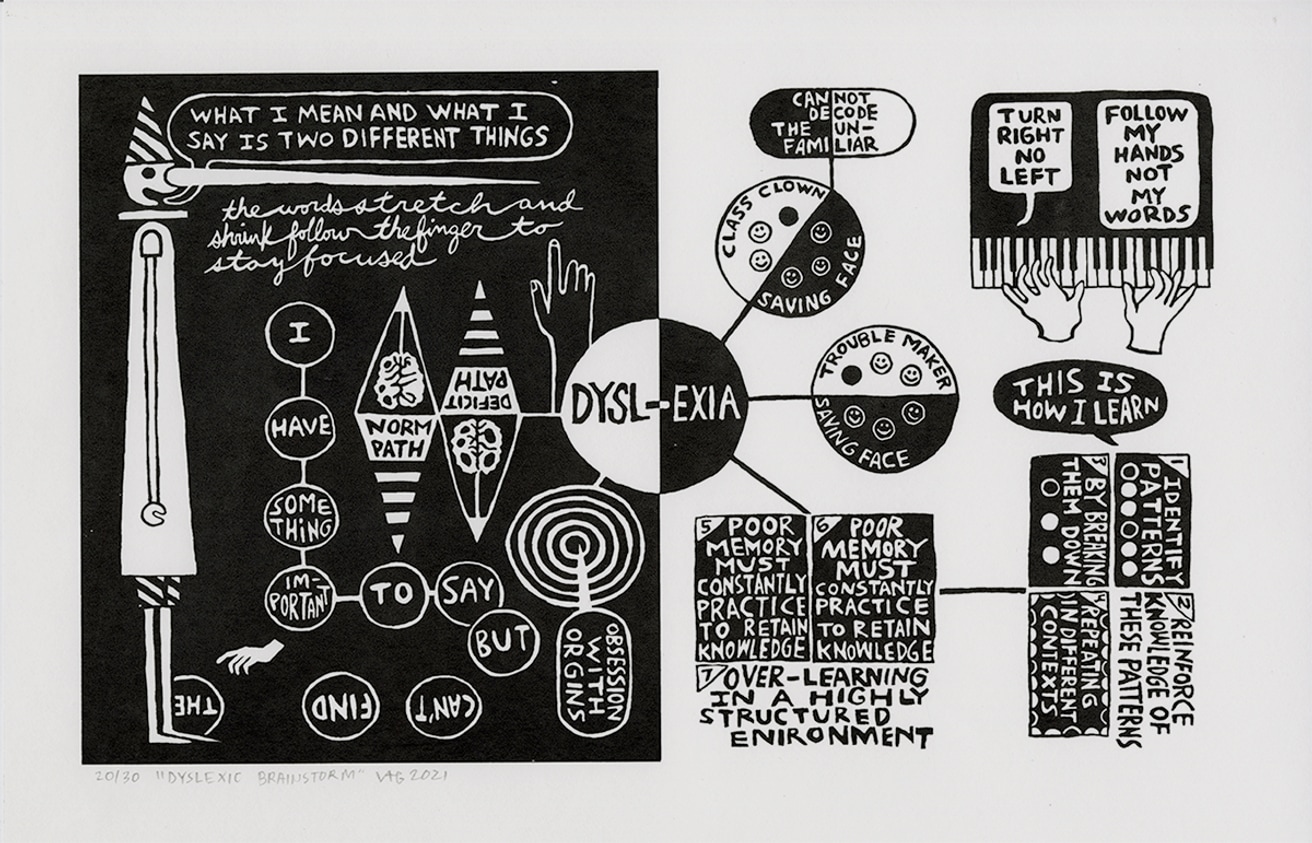 WHAT I MEAN AND WHAT I
SAY IS TWO DIFFERENT THINGS
the words stretch and
shrink follow the finger to
stay focused
I
HAVE
SOME
THING
IM-
PORTANT
TO
SAY
BUT
CAN'T
FIND
THE
NORM
PATH
DEFICIT
PATH
OBSESSION
WITH
ORGINS
DYSL-EXIA
CANNOT
DECODE
THE UN-
FAMILIAR
CLASS CLOWN
SAVING FACE
TROUBLE MAKER
SAVING FACE
TURN
RIGHT
NO
LEFT
FOLLOW
MY
HANDS
NOT
MY
WORDS
THIS IS
HOW I LEARN
1 IDENTIFY
PATTERNS
2 REINFORCE
KNOWLEDGE OF
THESE PATTERNS
3 BY BREAKING
THEM DOWN
4 REPEATING
IN DIFFERENT
CONTEXTS
5 POOR
MEMORY
MUST
CONSTANTLY
PRACTICE
TO RETAIN
KNOWLEDGE
6 POOR
MEMORY
MUST
CONSTANTLY
PRACTICE
TO RETAIN
KNOWLEDGE
7 OVER-LEARNING
IN A HIGHLY
STRUCTURED
ENIRONMENT
20/30 "DYSLEXIC BRAINSTORM" VAG 2021